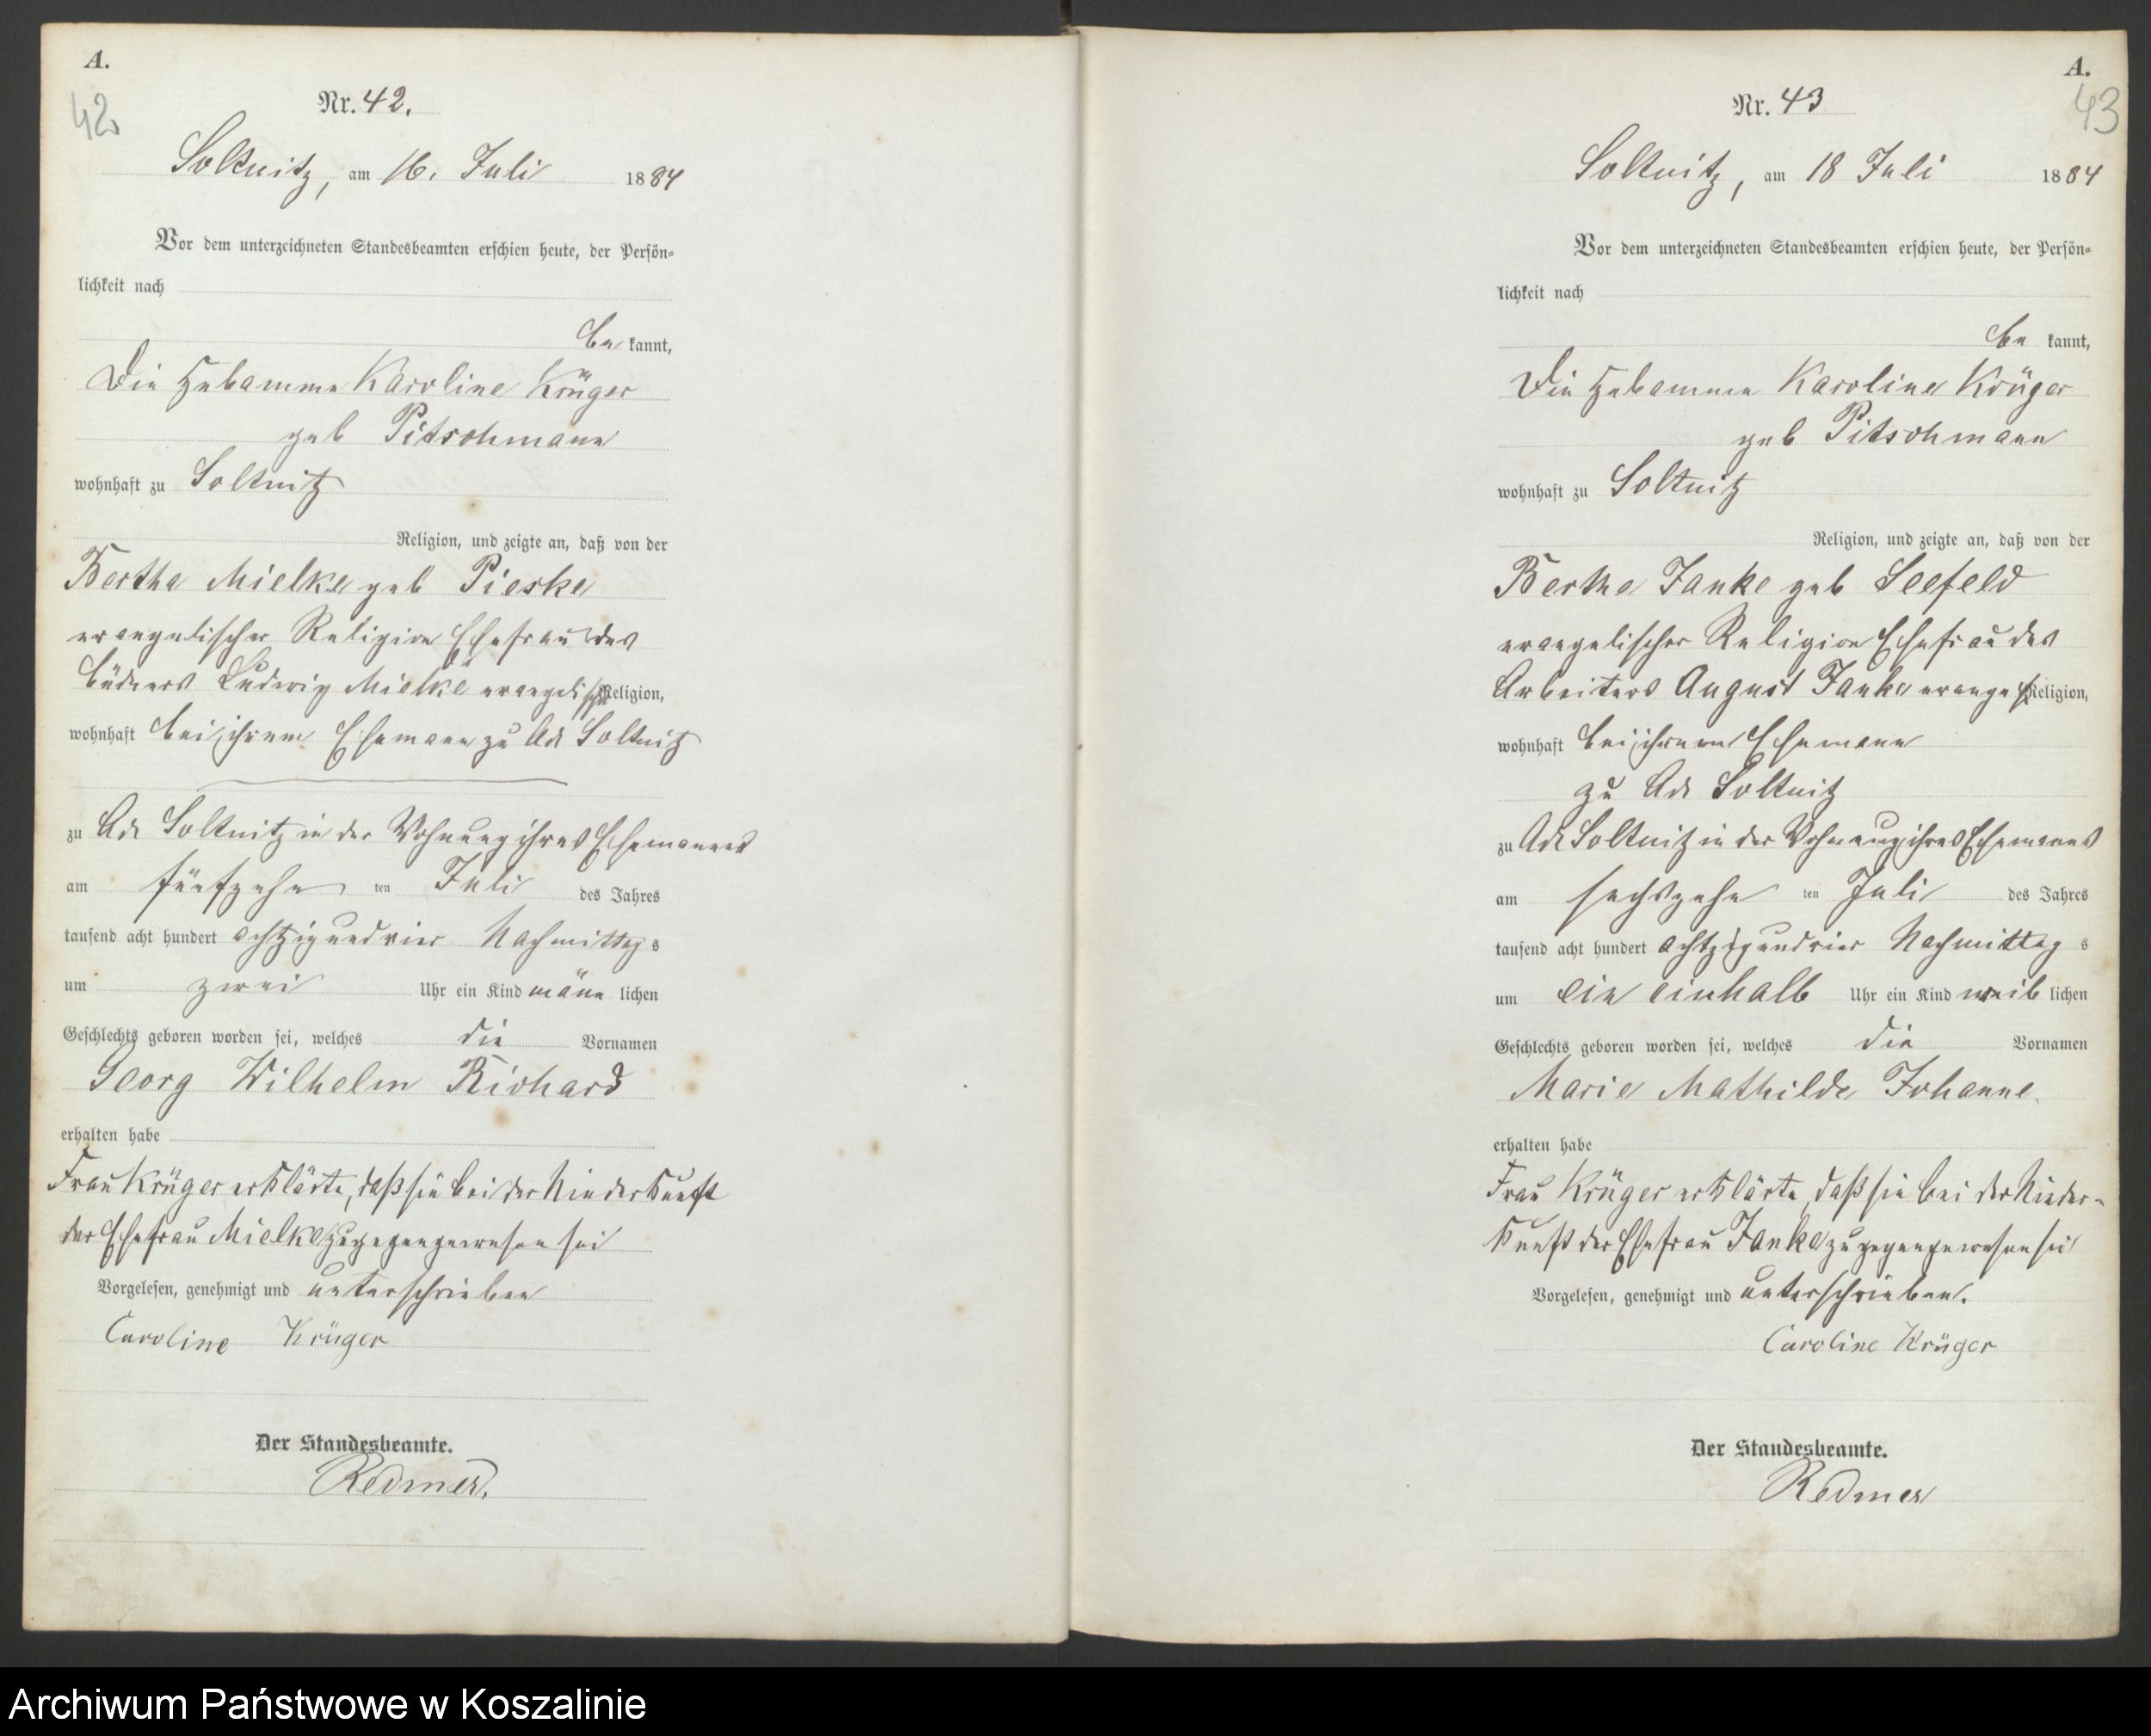 A.
42
Nr. 42.
Soltnitz, am 16. Juli 1884
Vor dem unterzeichneten Standesbeamten erschien heute, der Persön-
lichkeit nach
be kannt,
Die Hebamme Karoline Krüger
geb Pitschmann
wohnhaft zu Soltnitz
Religion, und zeigte an, daß von der
Bertha Mielke geb Pieske
evangelischer Religion Ehefrau des
Büdners Ludwig Mielke evangelisch Religion,
wohnhaft bei ihrem Ehemann zu Adl Soltnitz
zu Adl Soltnitz in der Wohnung ihres Ehemannes
am fünfzehn ten Juli des Jahres
tausend acht hundert achtzig und vier Nachmittag s
um zwei Uhr ein Kind männ lichen
Geschlechts geboren worden sei, welches die Vornamen
Georg Wilhelm Richard
erhalten habe
Frau Krüger erklärte, daß sie bei der Niederkunft
der Ehefrau Mielke zugegen gewesen sei
Vorgelesen, genehmigt und unterschrieben
Caroline Krüger
Der Standesbeamte.
Redmer.
A.
43
Nr. 43
Soltnitz, am 18 Juli 1884
Vor dem unterzeichneten Standesbeamten erschien heute, der Persön-
lichkeit nach
be kannt,
Die Hebamme Karoline Krüger
geb Pitschmann
wohnhaft zu Soltnitz
Religion, und zeigte an, daß von der
Bertha Janke geb Seefeld
evangelischer Religion Ehefrau des
Arbeiters August Janke evangelisch Religion,
wohnhaft bei ihrem Ehemann
zu Adl Soltnitz
zu Adl Soltnitz in der Wohnung ihres Ehemanns
am sechszehn ten Juli des Jahres
tausend acht hundert achtzig und vier Nachmittag s
um ein einhalb Uhr ein Kind weib lichen
Geschlechts geboren worden sei, welches die Vornamen
Marie Mathilde Johanne
erhalten habe
Frau Krüger erklärte, daß sie bei der Nieder-
kunft der Ehefrau Janke zugegen gewesen sei
Vorgelesen, genehmigt und unterschrieben.
Caroline Krüger
Der Standesbeamte.
Redmer
Archiwum Państwowe w Koszalinie